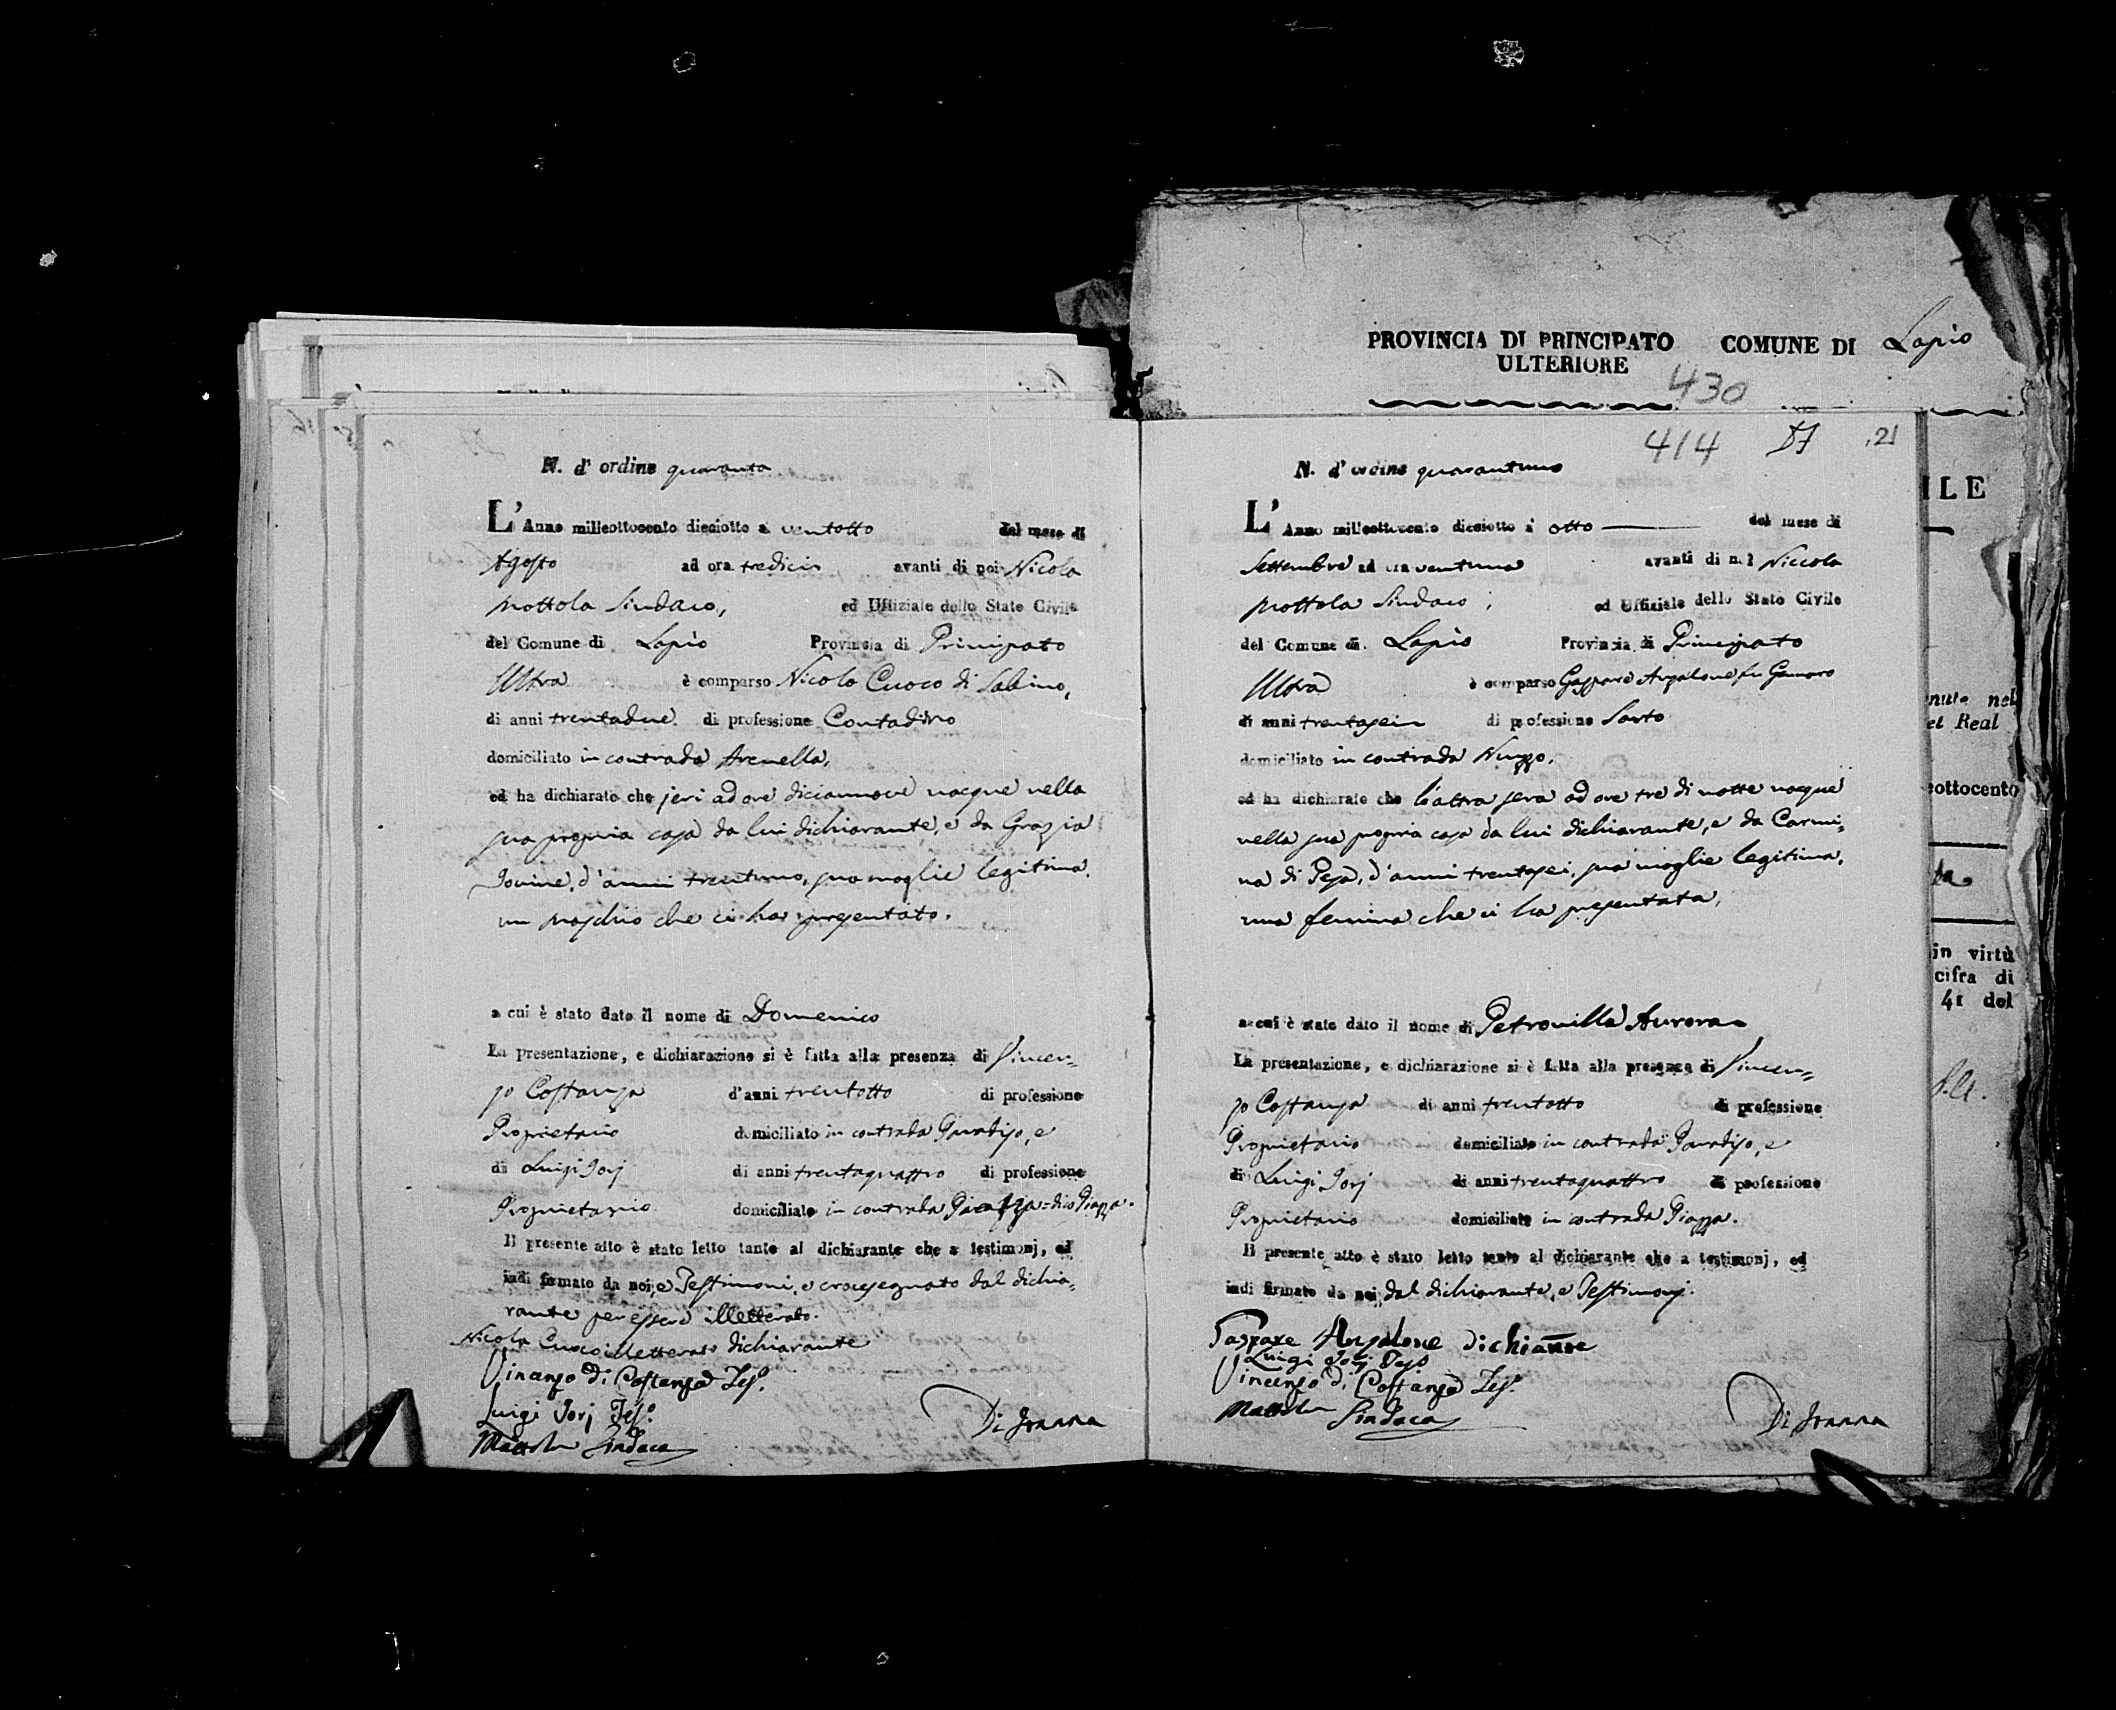 PROVINCIA DI PRINCIPATO ULTERIORE COMUNE DI Lapio
430
N. d' ordine quaranta
L' Anno milleottocento dieciotto a' ventotto del mese di
Agosto ad ora tredici avanti di noi Nicola
Mottola Sindaco, ed Uffiziale dello Stato Civile
del Comune di Lapio Provincia di Principato
Ultra è comparso Nicola Cuoco di Sabino,
di anni trentadue di professione Contadino
domiciliato in contrada Arenella,
ed ha dichiarato che jeri ad ore diciannove nacque nella
sua propria casa da lui dichiarante, e da Grazia
Iovine, d'anni trentuno, sua moglie legitima,
un maschio che ci ha presentato.
a cui è stato dato il nome di Domenico
La presentazione, e dichiarazione si è fatta alla presenza di Vincen=
zo Costanza d'anni trentotto di professione
Proprietario domiciliato in contrada Paradiso, e
di Luigi Iorj di anni trentaquattro di professione
Proprietario domiciliato in contrada = dico Piazza.
Il presente atto è stato letto tanto al dichiarante che a testimonj, ed
indi firmato da noi, e Testimoni, e crocesegnato dal dichia=
rante per essere illetterato.
Nicola Cuoco illetterato dichiarante
Vincenzo di Costanza Tes.o
Luigi Iorj Tes.o
Mottola Sindaco
Di Ioanna
414 21
N. d' ordine quarantuno
L' Anno milleottocento dieciotto a' otto del mese di
Settembre ad ora ventuna avanti di noi Niccola
Mottola Sindaco, ed Uffiziale dello Stato Civile
del Comune di Lapio Provincia di Principato
Ultra è comparso Gaspare Anzalone fu Gennaro
di anni trentasei di professione Sarto
domiciliato in contrada Nuzzo,
ed ha dichiarato che l'altra sera ad ore tre di notte nacque
nella sua propria casa da lui dichiarante, e da Carmi=
na di Pesa, d'anni trentasei, sua moglie legitima,
una femina che ci ha presentata,
a cui è stato dato il nome di Petronilla Aurora
La presentazione, e dichiarazione si è fatta alla presenza di Vincen=
zo Costanza di anni trentotto di professione
Proprietario domiciliato in contrada Paradiso, e
di Luigi Iorj di anni trentaquattro di professione
Proprietario domiciliato in contrada Piazza.
Il presente atto è stato letto tanto al dichiarante che a testimonj, ed
indi firmato da noi, dal dichiarante, e Testimonj.
Gaspare Anzalone dichiante
Luigi Iorj Teso
Vincenzo di Costanza Tes.o
Mottola Sindaco
Di Ioanna
ILE
nute nel
el Real
eottocento
in virtù
cifra di
41 del